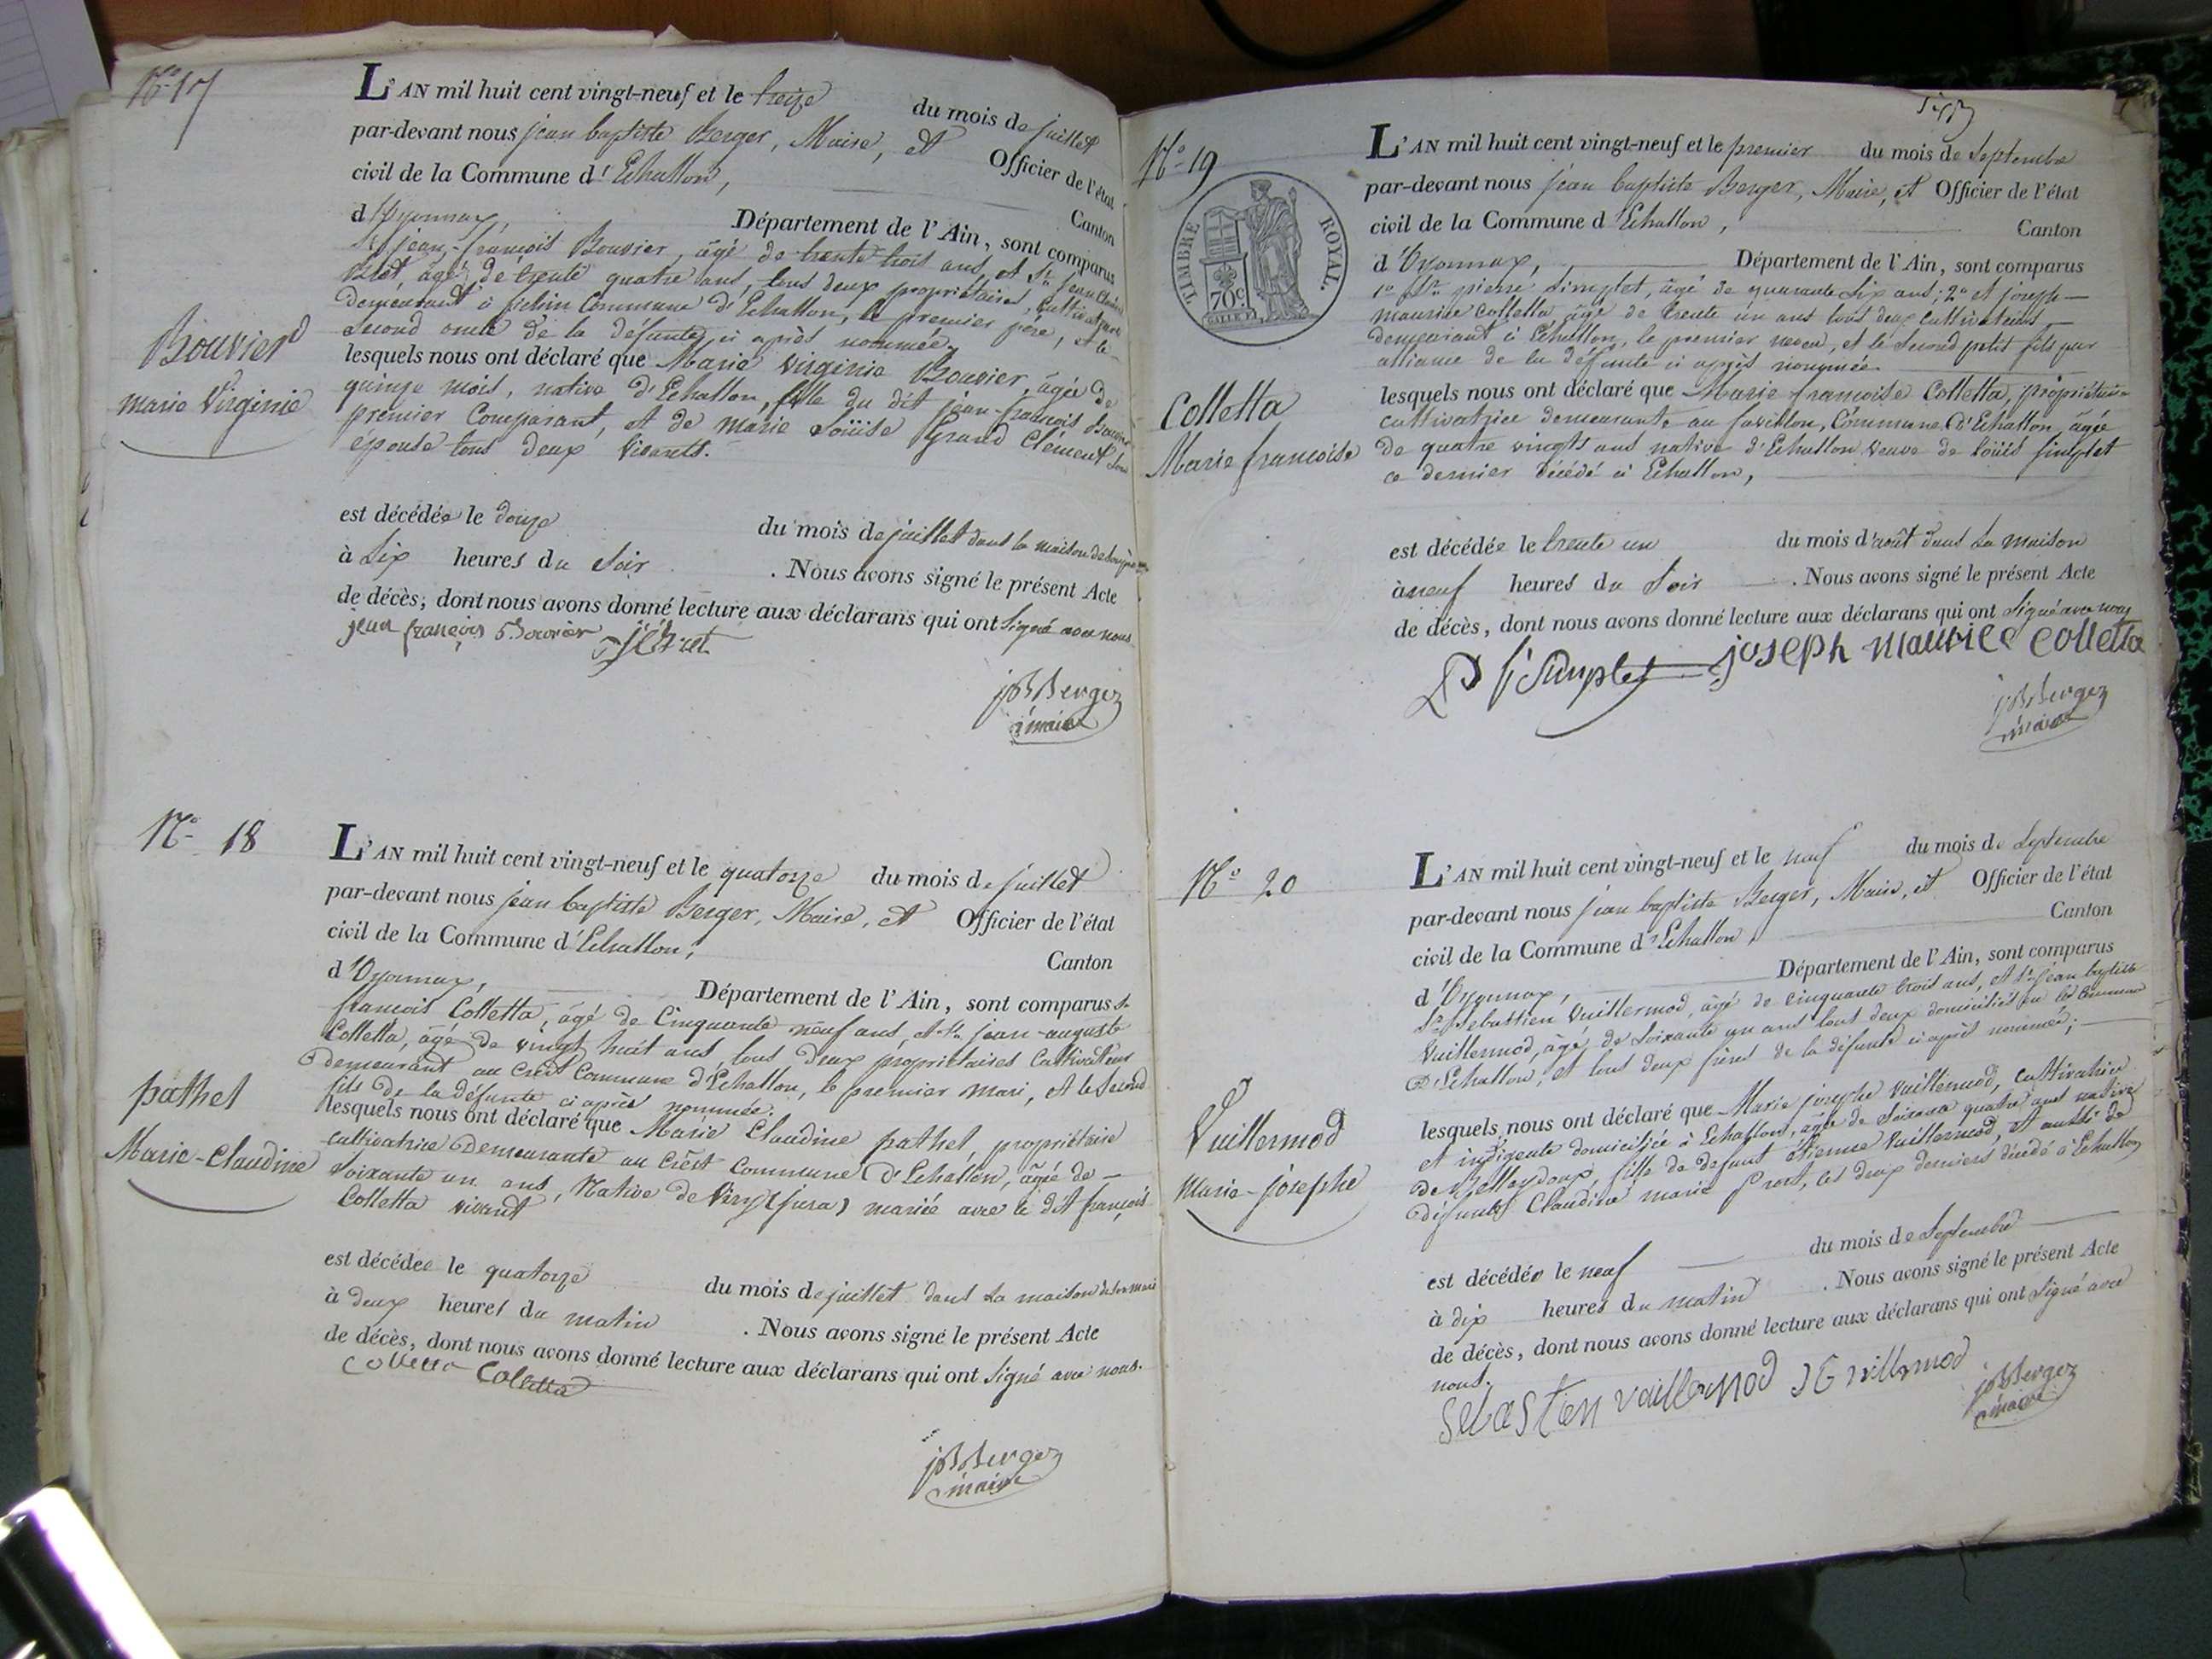 N° 17
L'AN mil huit cent vingt-neuf et le treize du mois de juillet
par-devant nous jean baptiste Berger, Maire, et Officier de l'état
civil de la Commune d'Echallon, Canton
d'Oyonnax, Département de l'Ain, sont comparus
Sr jean-françois Bouvier, âgé de trente trois ans, et Sr jean
âgé de trente quatre ans, tous deux propriétaires, cultivateurs
demeurant à Commune d'Echallon, le premier père, et le
second oncle de la défunte ci après nommée.
Bouvier
marie Virginie
lesquels nous ont déclaré que Marie Virginie Bouvier, âgée de
quinze mois, native d'Echallon, fille du dit jean-françois Bouvier
premier Comparant, et de marie Loüise Grand Clément son
epouse tous deux vivants.
est décédée le douze du mois de juillet dans la maison de son père
à Six heures du Soir . Nous avons signé le présent Acte
de décès, dont nous avons donné lecture aux déclarans qui ont Signé avec nous
jean françois Bouvier
jBBerger
maire
N° 18
L'AN mil huit cent vingt-neuf et le quatorze du mois de juillet
par-devant nous jean baptiste Berger, Maire, et Officier de l'état
civil de la Commune d'Echallon, Canton
d'Oyonnax, Département de l'Ain, sont comparus Sr
françois Colletta, âgé de Cinquante neuf ans, et Sr jean-auguste
Colletta, âgé de vingt huit ans, tous deux propriétaires Cultivateurs
demeurant au Crêt Commune d'Echallon, le premier mari, et le Second
fils de la défunte ci après nommée.
pathet
Marie-Claudine
lesquels nous ont déclaré que Marie Claudine pathet, propriétaire
cultivatrice Demeurante au Crêt Commune d'Echallon, âgée de
Soixante un ans, Native de Viry (jura) mariée avec le dit françois
Colletta vivant
est décédée le quatorze du mois de juillet dans la maison de son mari
à deux heures du matin . Nous avons signé le présent Acte
de décès, dont nous avons donné lecture aux déclarans qui ont Signé avec nous.
Colletta Colletta
jBBerger
maire
N° 19
TIMBRE ROYAL.
70c
L'AN mil huit cent vingt-neuf et le premier du mois de Septembre
par-devant nous jean baptiste Berger, Maire, et Officier de l'état
civil de la Commune d'Echallon, Canton
d'Oyonnax, Département de l'Ain, sont comparus
1° Sr pierre Simplet, âgé de quarante Six ans; 2° et joseph
maurice Colletta âgé de trente un ans tous deux cultivateurs
demeurant à Echallon, le premier neveu, et le Second petit fils par
alliance de la défunte ci après nommée.
Colletta
Marie françoise
lesquels nous ont déclaré que Marie françoise Colletta, propriétaire
cultivatrice demeurante au favillon, Commune d'Echallon, âgée
de quatre vingts ans native d'Echallon veuve de Loüis Simplet
ce dernier décédé à Echallon,
est décédée le trente un du mois d'août dans la maison
à neuf heures du Soir . Nous avons signé le présent Acte
de décès, dont nous avons donné lecture aux déclarans qui ont Signé avec nous
Simplet joseph maurice colletta
jBBerger
maire
N° 20
L'AN mil huit cent vingt-neuf et le neuf du mois de Septembre
par-devant nous jean baptiste Berger, Maire, et Officier de l'état
civil de la Commune d'Echallon, Canton
d'Oyonnax, Département de l'Ain, sont comparus
Sr Sebastien Vuillermod, âgé de cinquante trois ans, et Sr jean baptiste
Vuillermod, âgé de Soixante un ans tous deux domiciliés en la Commune
d'Echallon, et tous deux frères de la défunte ci après nommée;
Vuillermod
Marie-josephe
lesquels nous ont déclaré que Marie josephe Vuillermod, cultivatrice
et indigente domiciliée à Echallon, âgée de Soixante quatre ans native
de Belleydoux, fille de défunt étienne Vuillermod, et aussi de
défunte Claudine marie Prost, les deux derniers décédé à Echallon
est décédée le neuf du mois de Septembre
à dix heures du matin . Nous avons signé le présent Acte
de décès, dont nous avons donné lecture aux déclarans qui ont Signé avec
nous.
Sebastien vuillermod
jBBerger
maire